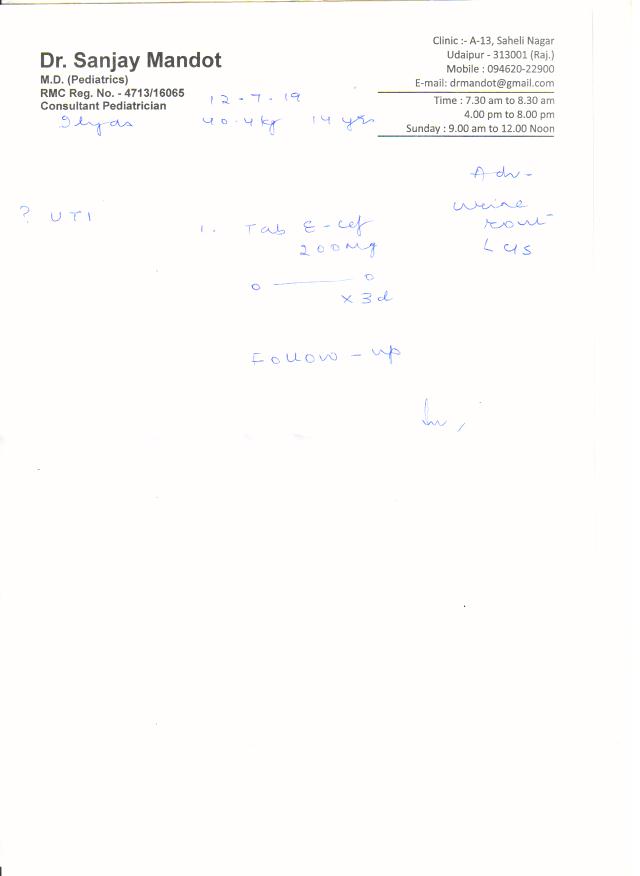 Dr. Sanjay Mandot
M.D. (Pediatrics)
RMC Reg. No. - 4713/16065
Consultant Pediatrician
Clinic :- A-13, Saheli Nagar
Udaipur - 313001 (Raj.)
Mobile : 094620-22900
E-mail: drmandot@gmail.com
Time : 7.30 am to 8.30 am
4.00 pm to 8.00 pm
Sunday : 9.00 am to 12.00 Noon
12-7-19
40.4kg 14 yrs
Adv-
urine
rout
? UTI
1. Tab E-cef
200mg
0 — 0
x 3d
Follow-up